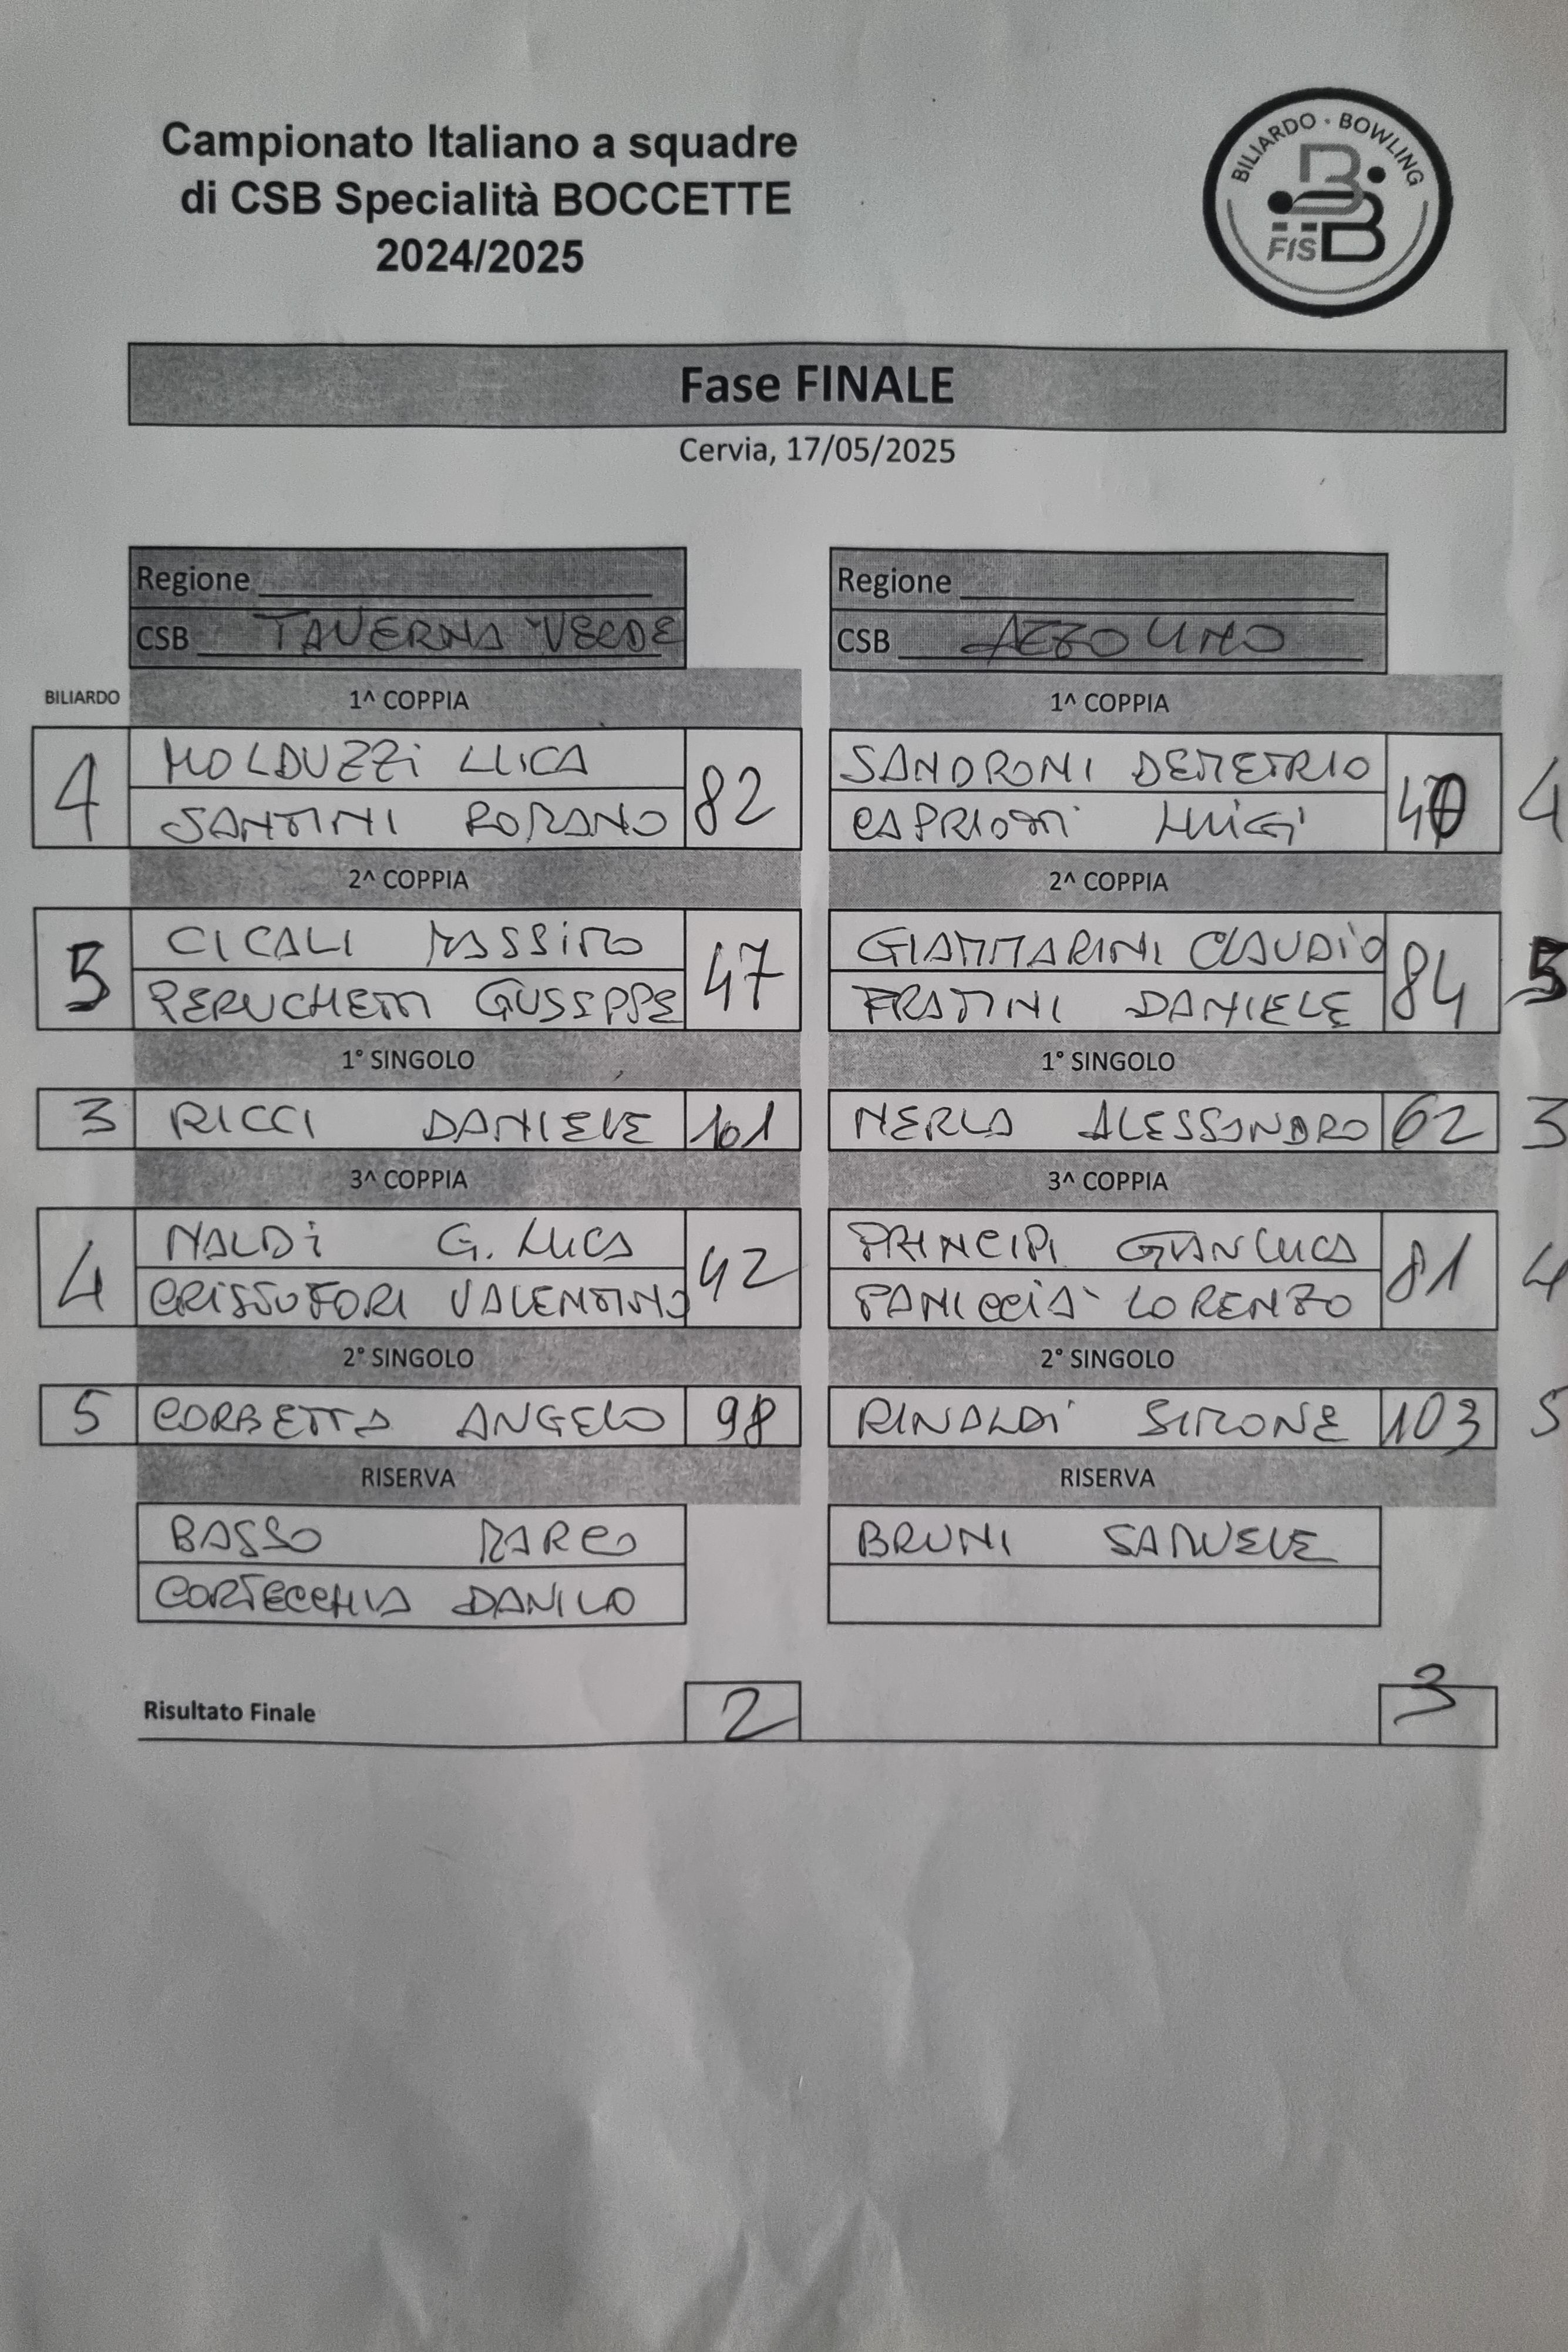 Campionato Italiano a squadre
di CSB Specialità BOCCETTE
2024/2025
BILIARDO · BOWLING
FISBB
Fase FINALE
Cervia, 17/05/2025
Regione
Regione
CSB TAVERNA VERDE
CSB AZZOLINO
BILIARDO 1^ COPPIA 1^ COPPIA
4 MOLDUZZI LUCA 82 SANDRONI DEMETRIO 40 4
SANTINI ROMANO CAPRIOTTI LUIGI
2^ COPPIA 2^ COPPIA
5 CICALI MASSIMO 47 GIAMMARINI CLAUDIO 84 5
PERUCHETTI GIUSEPPE FRATTINI DANIELE
1° SINGOLO 1° SINGOLO
3 RICCI DANIELE 101 NERLA ALESSANDRO 62 3
3^ COPPIA 3^ COPPIA
4 NALDI G. LUCA 42 PRINCIPI GIANLUCA 81 4
CRISTOFORI VALENTINO PANICCIA' LORENZO
2° SINGOLO 2° SINGOLO
5 CORBETTA ANGELO 98 RINALDI SIMONE 103 5
RISERVA RISERVA
BASSO MARCO BRUNI SAMUELE
CORTECCHIA DANILO
Risultato Finale 2 3